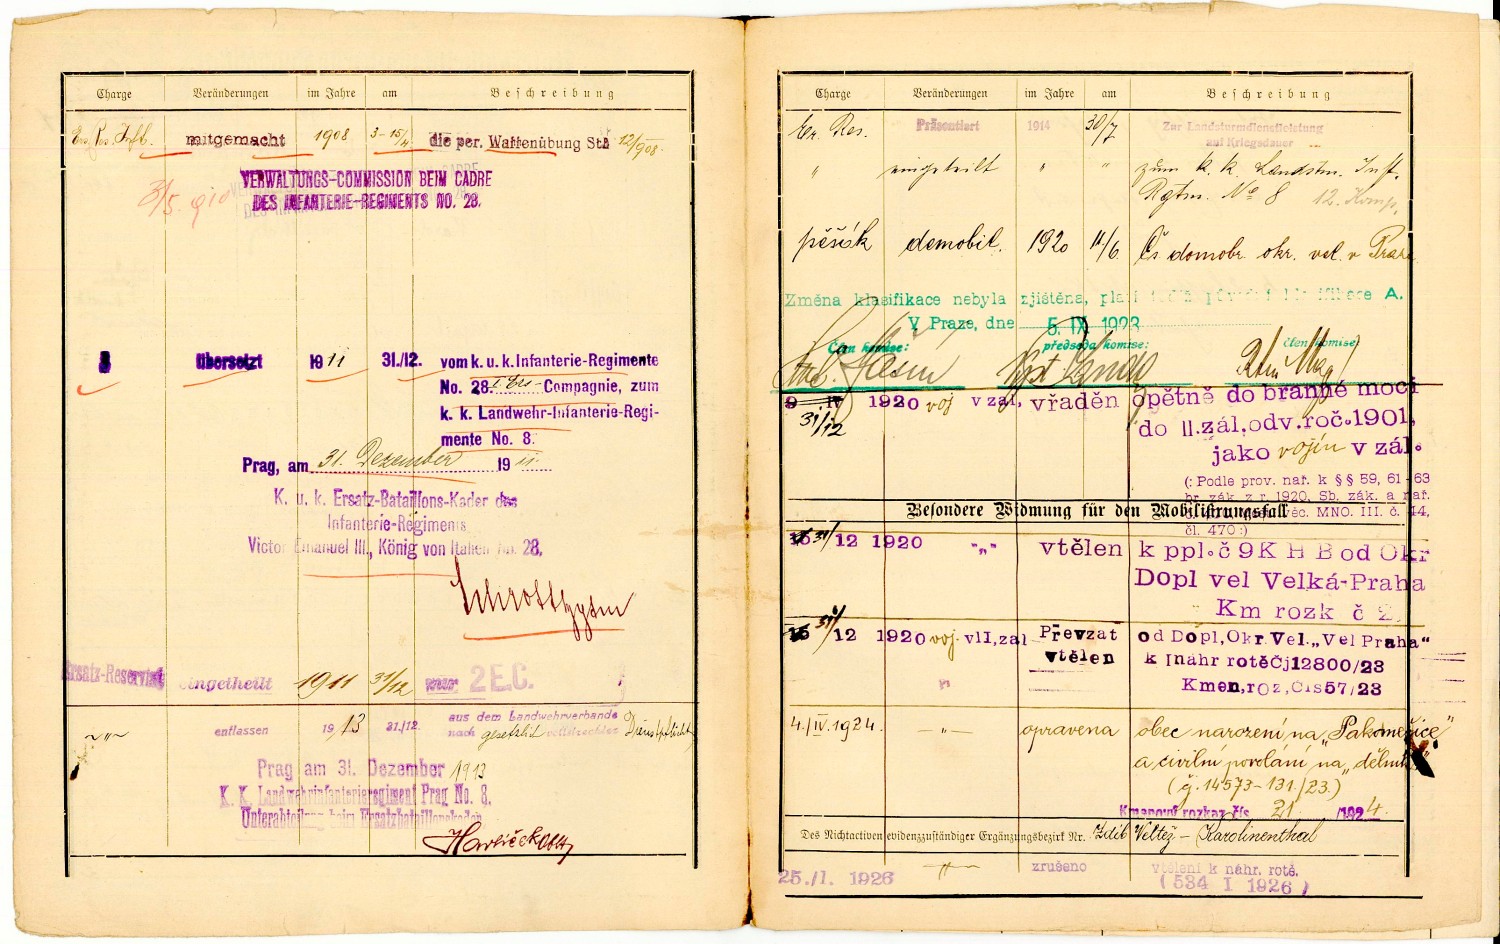 Charge Veränderungen im Jahre am Beschreibung
Ers. Res. Inftr. mitgemacht 1908 3-15/4 die per. Waffenübung Stb 12/908.
VERWALTUNGS-COMMISSION BEIM CADRE
3/5. 910
DES INFANTERIE-REGIMENTS NO. 28.
übersetzt 1911 31./12. vom k. u. k. Infanterie-Regimente
No. 28 Ers Compagnie, zum
k. k. Landwehr-Infanterie-Regi-
mente No. 8.
Prag, am 31. Dezember 1911
K. u. k. Ersatz-Bataillons-Kader des
Infanterie-Regiments
Victor Emanuel III., König von Italien No. 28,
Ersatz-Reservist eingetheilt 1911 31/12 zur 2 E.C.
-"- entlassen 1913 31./12. aus dem Landwehrverbande
nach gesetzlich vollstreckter Dienstpflicht
Prag am 31. Dezember 1913
K. K. Landwehrinfanterieregiment Prag No. 8,
Unterabteilung beim Ersatzbataillonskader
Havlíček
Charge Veränderungen im Jahre am Beschreibung
Er. Res. Präsentiert 1914 30/7 Zur Landsturmdienstleistung
auf Kriegsdauer
" eingeteilt " " zum k. k. Landstm. Inft.
Rgtm. No 8 12. Komp.
pěšák demobil. 1920 11/6 Čs domobr. okr. vel. v Praze
Změna klasifikace nebyla zjištěna, platí tedy původní klasifikace A.
V Praze, dne 5. IX 1923
Člen komise: předseda komise: Člen komise:
9 IV 1920 voj v zál, vřaděn opětně do branné moci
31/12
do II.zál,odv.roč.1901,
jako vojín v zál.
(: Podle prov. nař. k §§ 59, 61-63
br. zák. z r. 1920, Sb. zák. a nař.
věc. MNO. III. č. 44,
Besondere Widmung für den Mobilisirungsfall
čl. 470:)
31/12 1920 "„" vtělen k ppl.č 9K H B od Okr
Dopl vel Velká-Praha
Km rozk č 2.
31/12 1920 voj vII,zal Převzat od Dopl,Okr.Vel.„Vel Praha"
vtělen k Inahr rotěČj12800/23
Kmen,roz,čis57/23
4./IV. 1924. -"- opravena obec narození na „Pakoměřice"
a civilní povolání na „dělník"
(čj. 14573-131./23.)
Kmenový rozkaz čís. 21 /1924.
Des Nichtactiven evidenzzuständiger Ergänzungsbezirk Nr. Zdib Weltež - Karolinenthal
25./I. 1926 -"- zrušeno vtělení k náhr. rotě.
(534 I 1926)